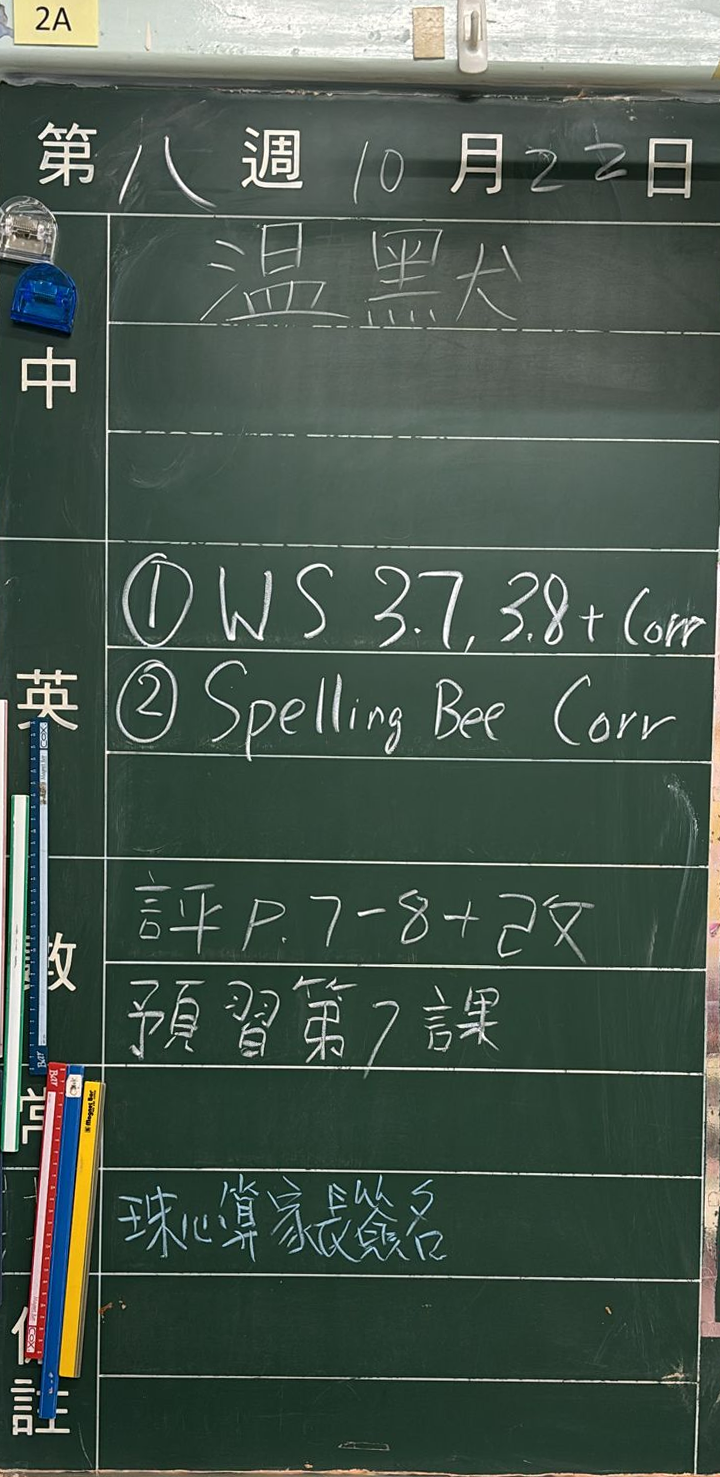 2A
第八週 10月22日
温默
中
①WS 3.7, 3.8 + Corr
②Spelling Bee Corr
英
評 P. 7-8+改
預習第7課
珠心算家長簽名
註